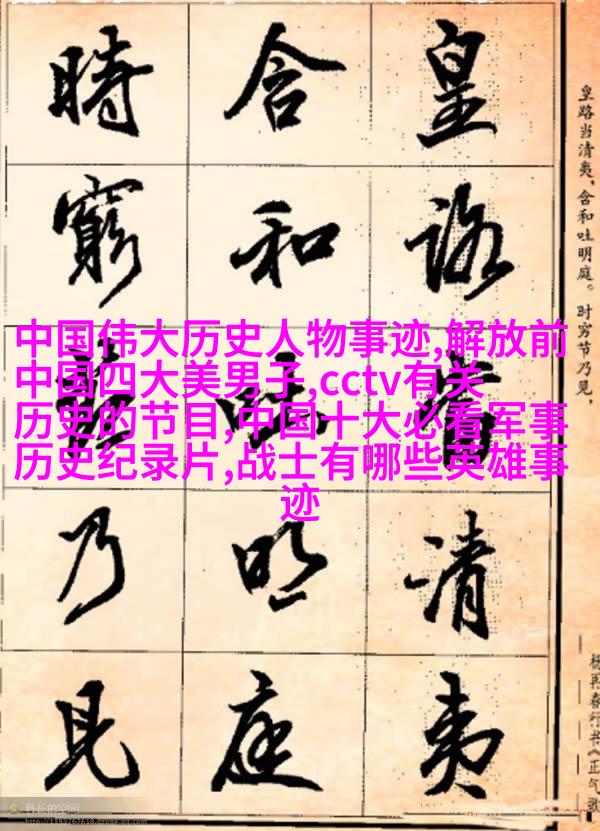 皇路當清夷
含和吐明庭
時窮節乃見
皇路当清夷，含和吐明庭。时穷节乃见，
杨再春行书《正气歌
中国伟大历史人物事迹,解放前
中国四大美男子,cctv有关
历史的节目,中国十大必看军事
历史纪录片,战士有哪些英雄事
迹
科长的空间